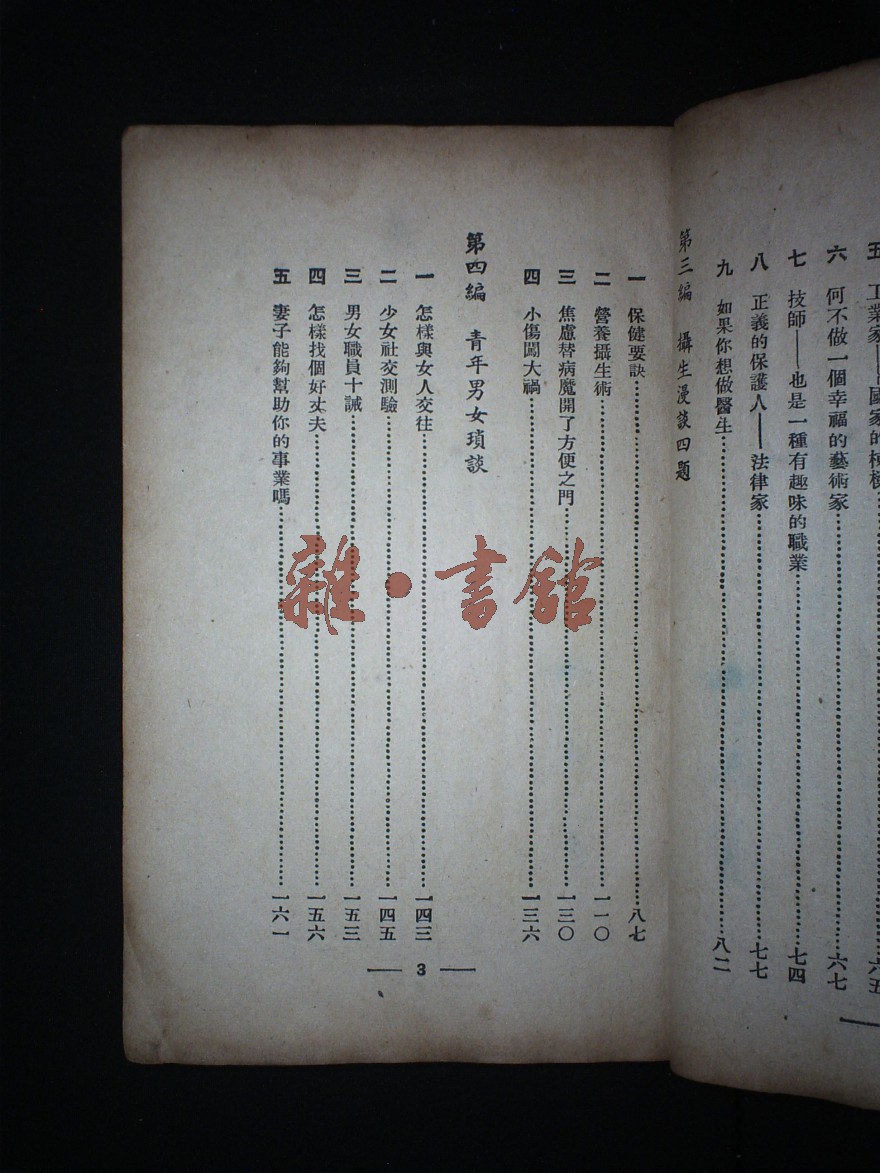 五 工業家——國家的棟樑……六五
六 何不做一個幸福的藝術家……六七
七 技師——也是一種有趣味的職業……七四
八 正義的保護人——法律家……七七
九 如果你想做醫生……八二
第三編 攝生漫談四題
一 保健要訣……八七
二 營養攝生術……一一〇
三 焦慮替病魔開了方便之門……一三〇
四 小傷闖大禍……一三六
第四編 青年男女瑣談
一 怎樣與女人交往……一四三
二 少女社交測驗……一四五
三 男女職員十誡……一五三
四 怎樣找個好丈夫……一五六
五 妻子能夠幫助你的事業嗎……一六一
— 3 —
雜·書館